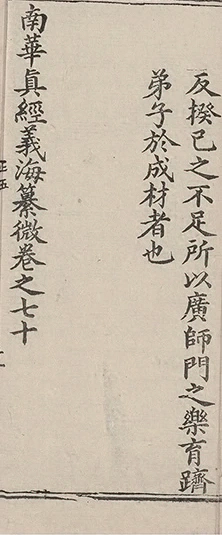 反揆己之不足所以廣師門之樂育躋
弟子於成材者也
南華眞經義海纂微卷之七十